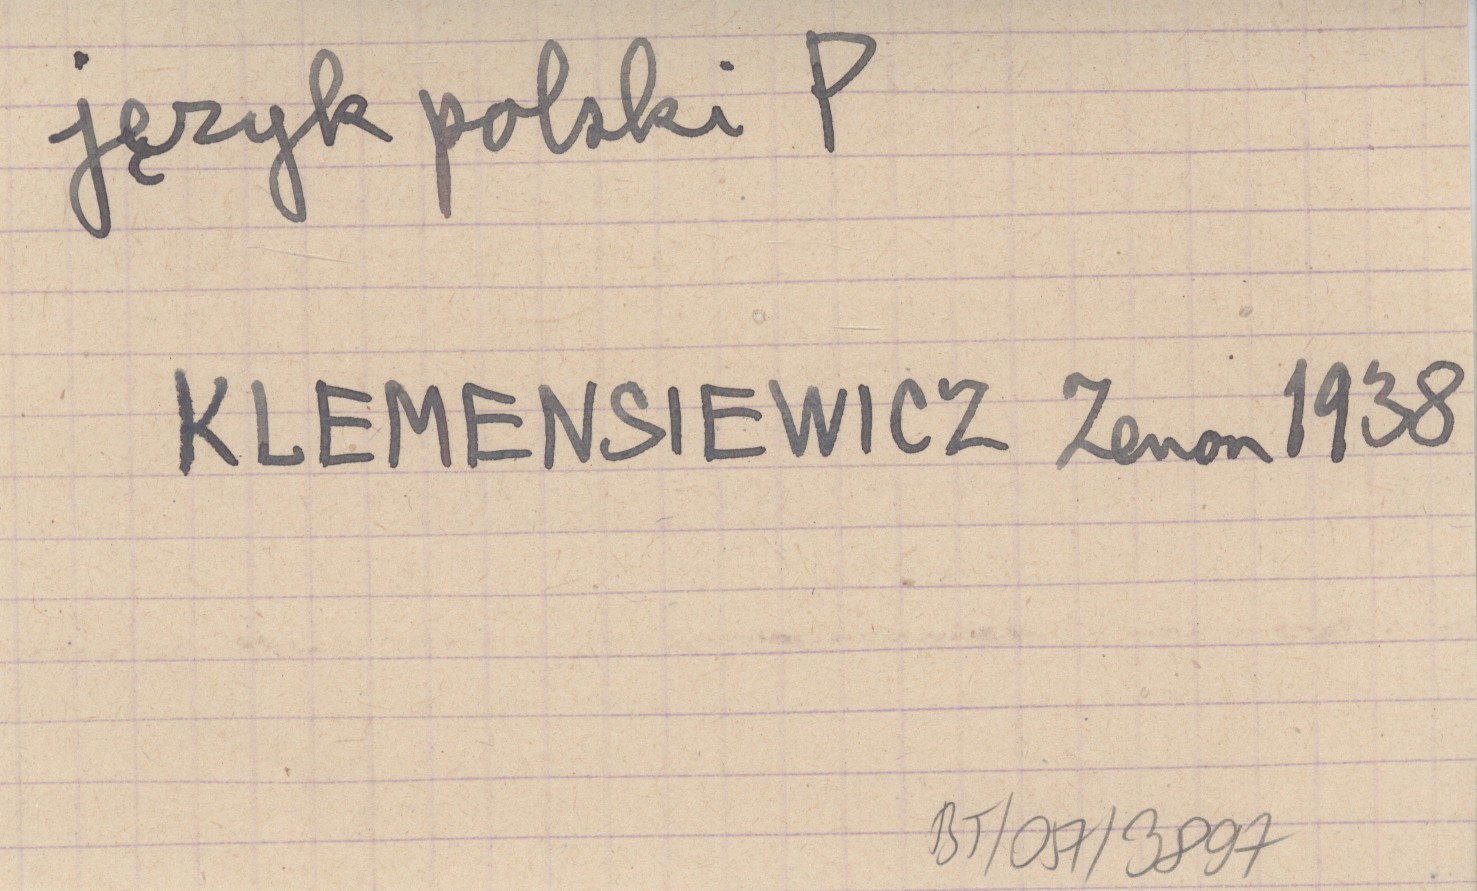 język polski P
KLEMENSIEWICZ Zenon 1938
BT/057/3897